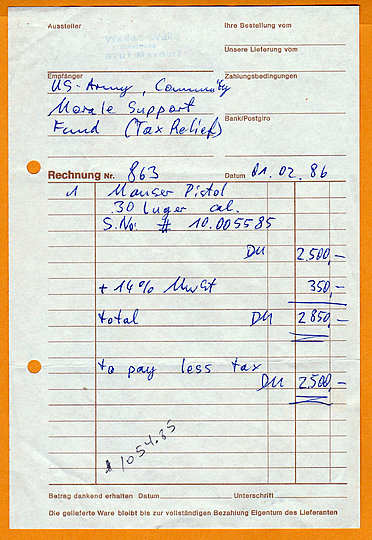 Aussteller
Ihre Bestellung vom
Unsere Lieferung vom
Empfänger
Zahlungsbedingungen
US-Army, Community
Morale Support
Bank/Postgiro
Fund (Tax Relief)
Rechnung Nr. 863 Datum 01.02.86
1 Mauser Pistol
.30 luger cal.
S.No: # 10.005585
DM 2.500,-
+ 14% MwSt 350,-
total DM 2 850,-
to pay less tax
DM 2.500,-
$1054.85
Betrag dankend erhalten Datum Unterschrift
Die gelieferte Ware bleibt bis zur vollständigen Bezahlung Eigentum des Lieferanten